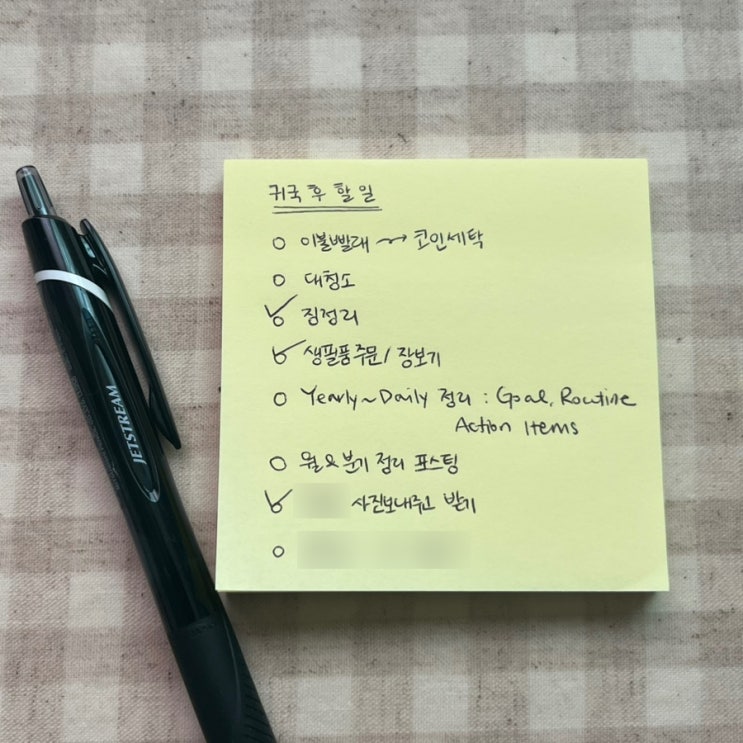 귀국 후 할 일
이불빨래 → 코인세탁
대청소
짐정리
생필품주문/장보기
Yearly~Daily 정리 : Goal, Routine
Action Items
월&분기 정리 포스팅
사진보내주고 받기
JETSTREAM